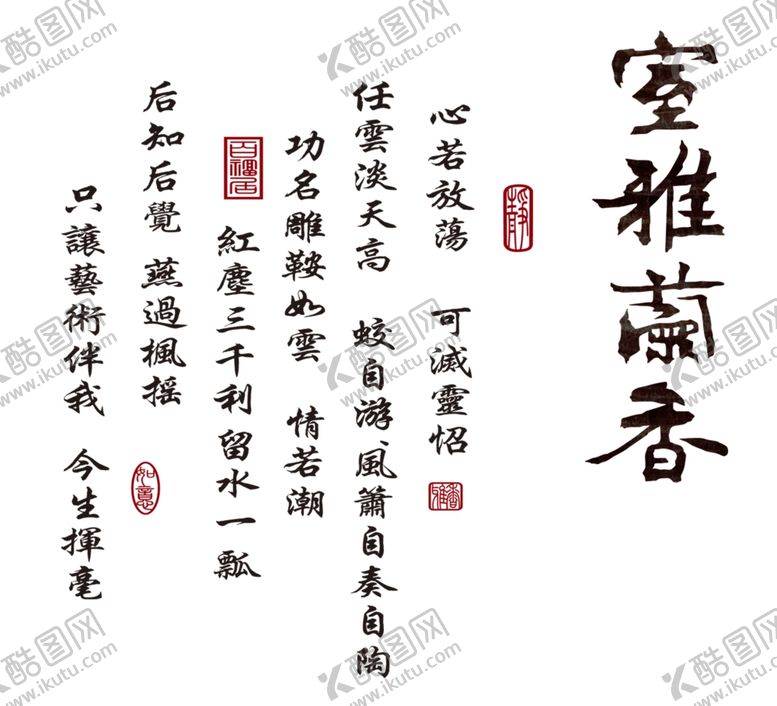 室雅蘭香
静
心若放蕩 可滅靈怊
雅香
任雲淡天高 蛟自游風簫自奏自陶
功名雕鞍如雲 情若潮
百福居
紅塵三千利留水一瓢
后知后覺 燕過楓摇
如意
只讓藝術伴我 今生揮毫
酷图网
www.ikutu.com